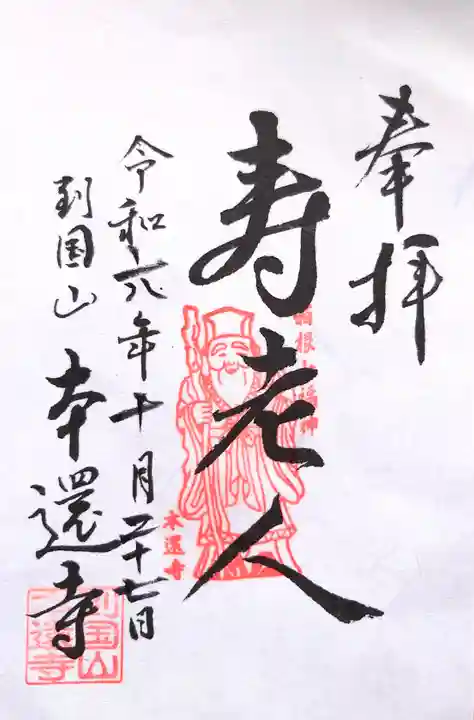 奉拝
寿老人
箱根七福神
本還寺
令和六年十月二十七日
到国山 本還寺
到国山
本還寺